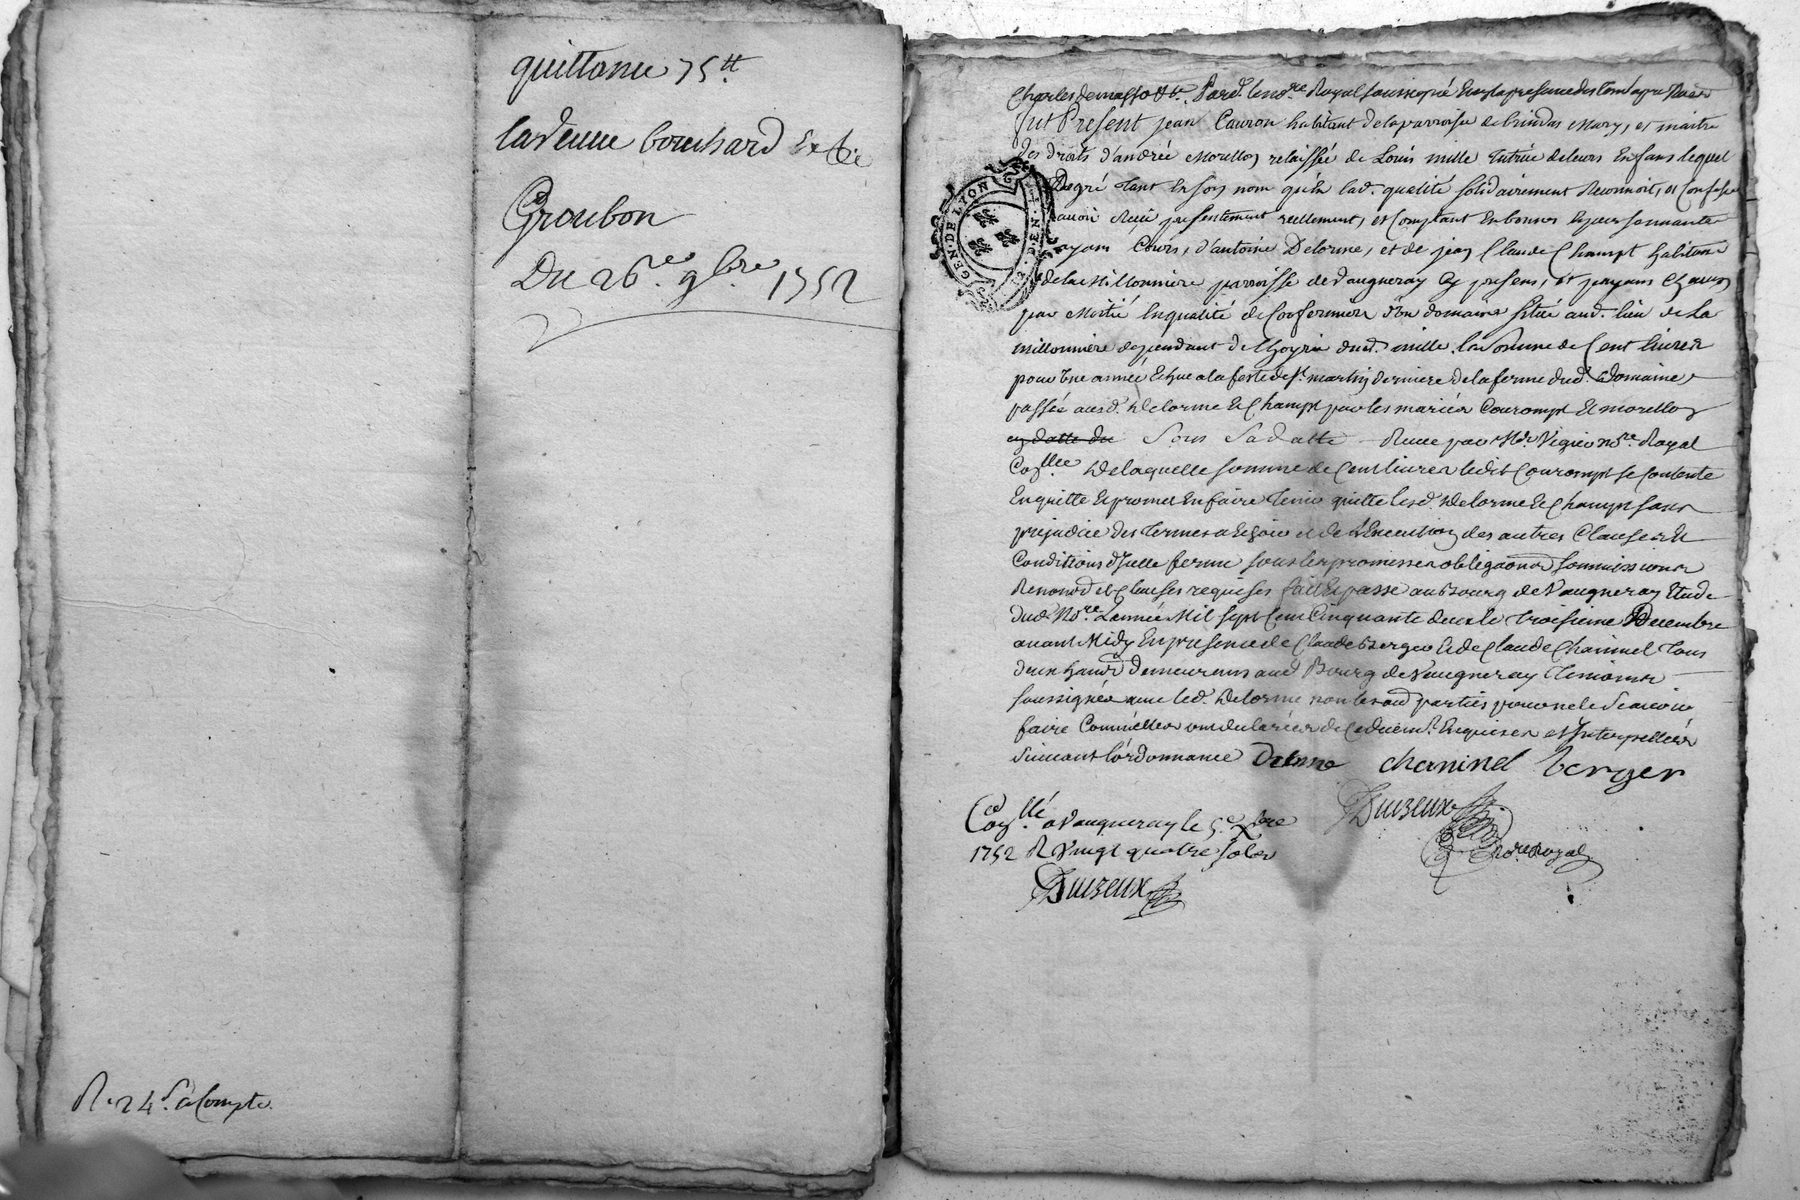 quittance 75 tt
la veuve bouchard
Groubon
Du 26e 9bre 1752
R. 24 s. a Compte
Pard. le no.re Royal soussigné En la presence des tem.
fut Present jean habitant de la parroisse de brindas Mary, et maitre
des droits d'andrée Morellon relaissée de Louis mille tutrice de leurs Enfans lequel
Degré tant En son nom qu'en lad. qualité solidairement Reconnoit, et Confesse
avoir Receu presentement reellement, et Comptant En bonnes Especes sonnantes
ayans Cours, d'antoine Delorme, et de jean Claude Champt habitans
de la Millonniere parroisse de Vaugneray Cy presens, et payans Chacun
par Moitié En qualité de Confermiers d'un domaine scitué aud. lieu de La
millonniere dependant de L'hoyrie dud. mille, la somme de Cent livres
pour Une année Echue a la feste de St. martin derniere de la ferme dud. Domaine
passée ausd. Delorme & Champt par les mariés Courompt & morellon
Sous Sa datte Receue par Me. Vigier no.re Royal
De laquelle somme de Cent livres ledit Courompt se Contente
En quitte & promet En faire tenir quitte lesd. Delorme & Champt sans
prejudice des termes a Echoir et de L'Execution des autres Clauses &
Conditions d'Icelle ferme sous les promesses obligaons soumissions
Renonons et Clauses requises fait & passé au Bourg de Vaugneray Etude
dud. No.re L'année Mil sept Cent Cinquante deux le troisieme Decembre
avant Midy En presence de Claude Berger & de Claude Chaninel tous
deux demeurans aud. Bourg de Vaugneray temoins
soussignés avec led. Delorme non lesd. parties pour ne le Scavoir
faire Comm'elles ont declaré de Ce Enquises et Interpellées
Suivant l'ordonnance Delorme chaninel berger
Con.llé a Vaugneray le 5.e Xbre Duizeux
1752 R Vingt quatre sols No.re Royal
Duizeux
GEN. DE LYON